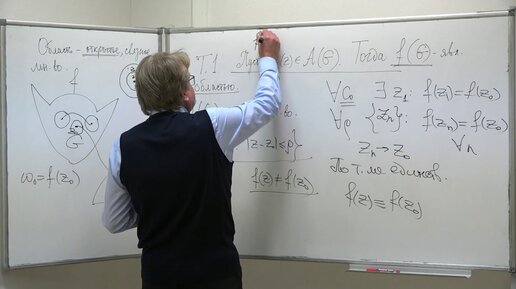 Область - открытое, связн.
мн-во.
f
G
ω₀ = f(z₀)
Т.1. Пусть f(z) ∈ A(G). Тогда f(G) - явл.
областью.
|z - z₀| ≤ ρ}
f(z) ≠ f(z₀)
∀ρ₀ ∃ z₁: f(z₁) = f(z₀)
∀ρ {zₙ}: f(zₙ) = f(z₀)
zₙ → z₀ ∀n
По т. ле единств.
f(z) ≡ f(z₀)